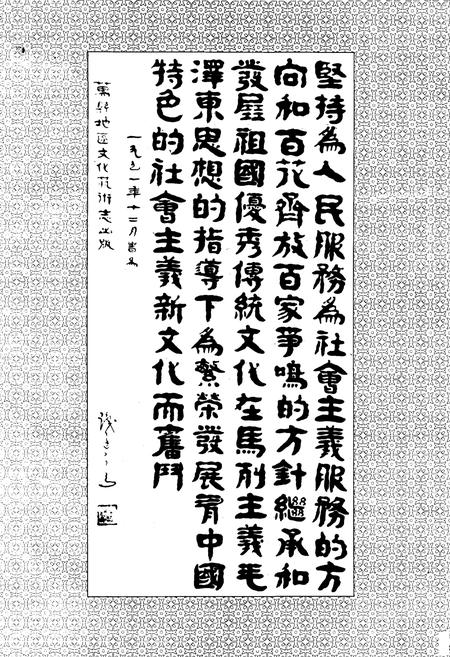 堅持為人民服務為社會主義服務的方
向和百花齊放百家爭鳴的方針繼承和
發展祖國優秀傳統文化在馬列主義毛
澤東思想的指導下為繁榮發展有中國
特色的社會主義新文化而奮鬥
萬縣地區文化藝術志出版
一九九一年十二月